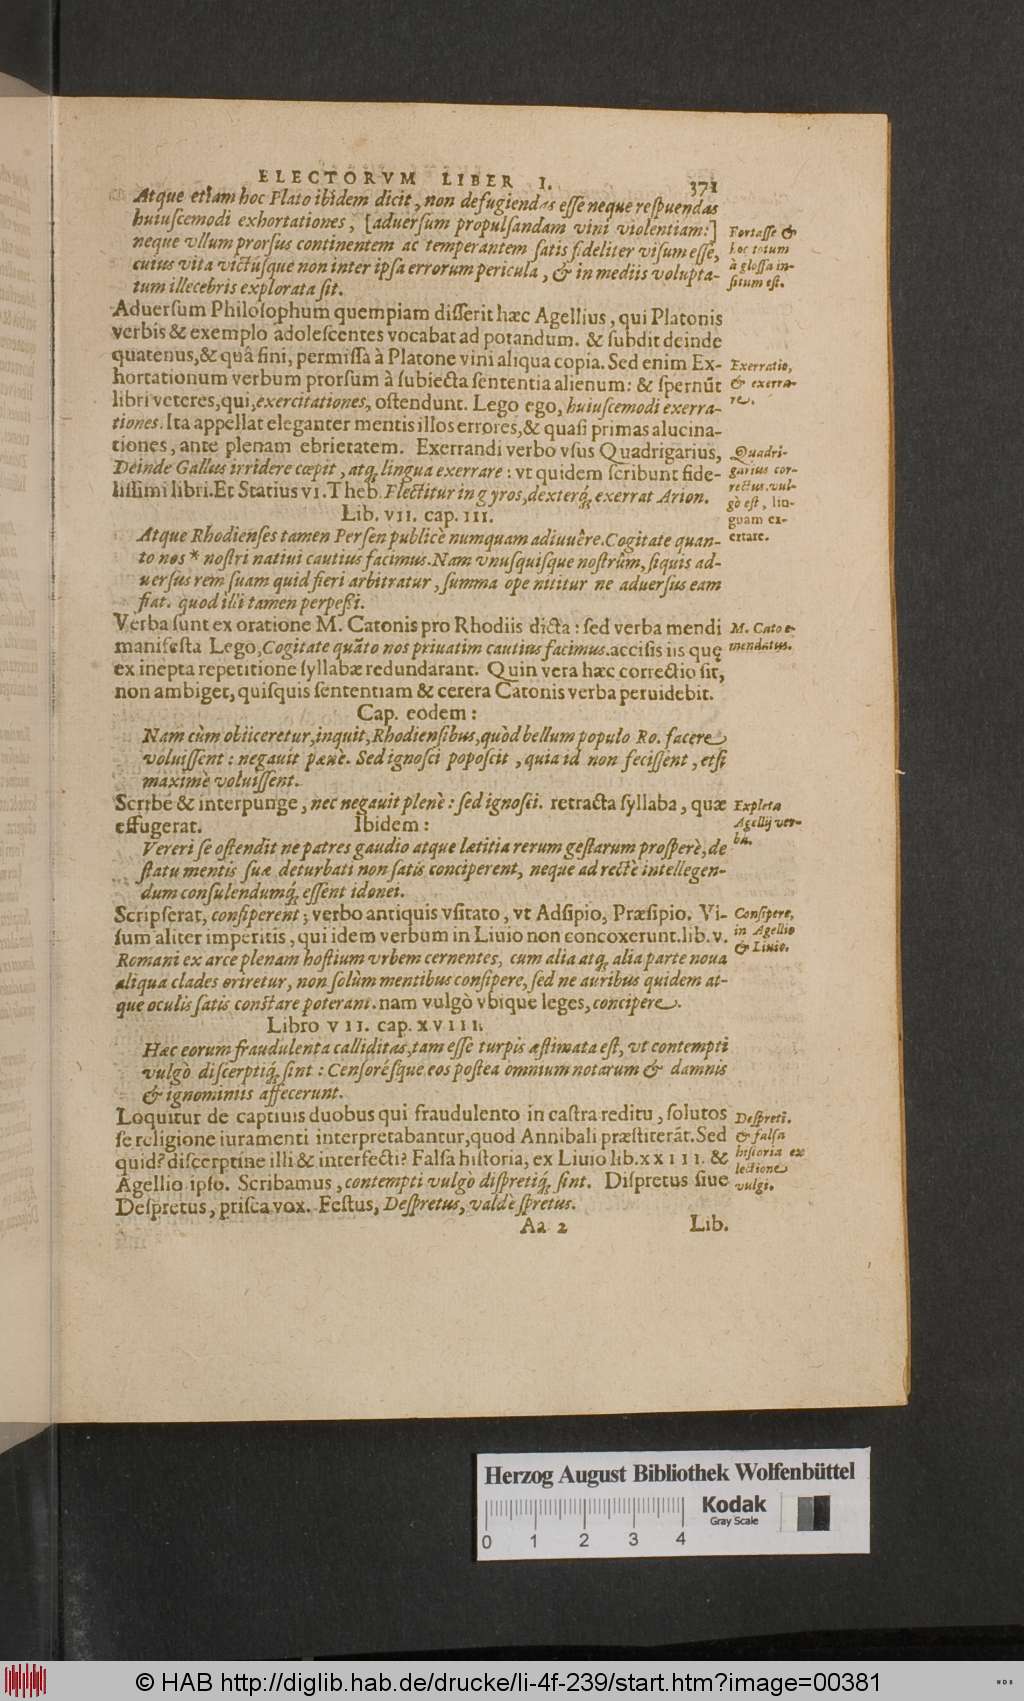 ELECTORVM LIBER I. 371
Atque etiam hoc Plato ibidem dicit, non defugiendas esse neque respuendas
huiuscemodi exhortationes, [aduersum propulsandam vini violentiam:]
neque vllum prorsus continentem ac temperantem satis fideliter visum esse,
cuius vita victúsque non inter ipsa errorum pericula, & in mediis volupta-
tum illecebris explorata sit.
Fortasse &
hoc totum
à glossa in-
situm est.
Aduersum Philosophum quempiam disserit hæc Agellius, qui Platonis
verbis & exemplo adolescentes vocabat ad potandum. & subdit deinde
quatenus, & quâ fini, permissa à Platone vini aliqua copia. Sed enim Ex-
hortationum verbum prorsum à subiecta sententia alienum: & spernũt
libri veteres, qui, exercitationes, ostendunt. Lego ego, huiuscemodi exerra-
tiones. Ita appellat eleganter mentis illos errores, & quasi primas alucina-
tiones, ante plenam ebrietatem. Exerrandi verbo vsus Quadrigarius,
Deinde Gallus irridere cœpit, atq́, lingua exerrare: vt quidem scribunt fide-
lissimi libri. Et Statius VI. Theb. Flectitur in gyros, dexterq́, exerrat Arion.
Exerratio,
& exerra-
re.
Quadri-
garius cor-
rectus. vul-
gò est, lin-
guam ex-
ertare.
Lib. VII. cap. III.
Atque Rhodienses tamen Persen publicè numquam adiuuêre. Cogitate quan-
to nos * nostri natiui cautius facimus. Nam vnusquisque nostrûm, siquis ad-
uersus rem suam quid fieri arbitratur, summa ope nititur ne aduersus eam
fiat. quod illi tamen perpeßi.
Verba sunt ex oratione M. Catonis pro Rhodiis dicta: sed verba mendi
manifesta Lego, Cogitate quãto nos priuatim cautius facimus. accisis iis quę
ex inepta repetitione syllabæ redundarant. Quin vera hæc correctio sit,
non ambiget, quisquis sententiam & cetera Catonis verba peruidebit.
M. Cato e-
mendatus.
Cap. eodem:
Nam cùm obiiceretur, inquit, Rhodiensibus, quòd bellum populo Ro. facere
voluissent: negauit pænè. Sed ignosci poposcit, quia id non fecissent, etsi
maximè voluissent.
Scribe & interpunge, nec negauit plenè: sed ignosci. retracta syllaba, quæ
effugerat. Ibidem:
Expleta
Agellij ver-
ba.
Vereri se ostendit ne patres gaudio atque lætitia rerum gestarum prosperè, de
statu mentis suæ deturbati non satis conciperent, neque ad rectè intellegen-
dum consulendumq́, essent idonei.
Scripserat, consiperent; verbo antiquis vsitato, vt Adsipio, Præsipio. Vi-
sum aliter imperitis, qui idem verbum in Liuio non concoxerunt. lib. V.
Romani ex arce plenam hostium vrbem cernentes, cum alia atq́, alia parte noua
aliqua clades oriretur, non solùm mentibus consipere, sed ne auribus quidem at-
que oculis satis constare poterant. nam vulgò vbique leges, concipere.
Consipere,
in Agellio
& Liuio.
Libro VII. cap. XVIII.
Hæc eorum fraudulenta calliditas, tam esse turpis æstimata est, vt contempti
vulgò discerptiq́, sint: Censorésque eos postea omnium notarum & damnis
& ignominiis affecerunt.
Loquitur de captiuis duobus qui fraudulento in castra reditu, solutos
se religione iuramenti interpretabantur, quod Annibali præstiterãt. Sed
quid? discerptíne illi & interfecti? Falsa historia, ex Liuio lib. XXIII. &
Agellio ipso. Scribamus, contempti vulgò dispretiq́, sint. Dispretus siue
Despretus, prisca vox. Festus, Despretus, valdè spretus.
Despreti.
& falsa
historia ex
lectione
vulgi.
Aa 2 Lib.
Herzog August Bibliothek Wolfenbüttel
Kodak
Gray Scale
0 1 2 3 4
© HAB http://diglib.hab.de/drucke/li-4f-239/start.htm?image=00381